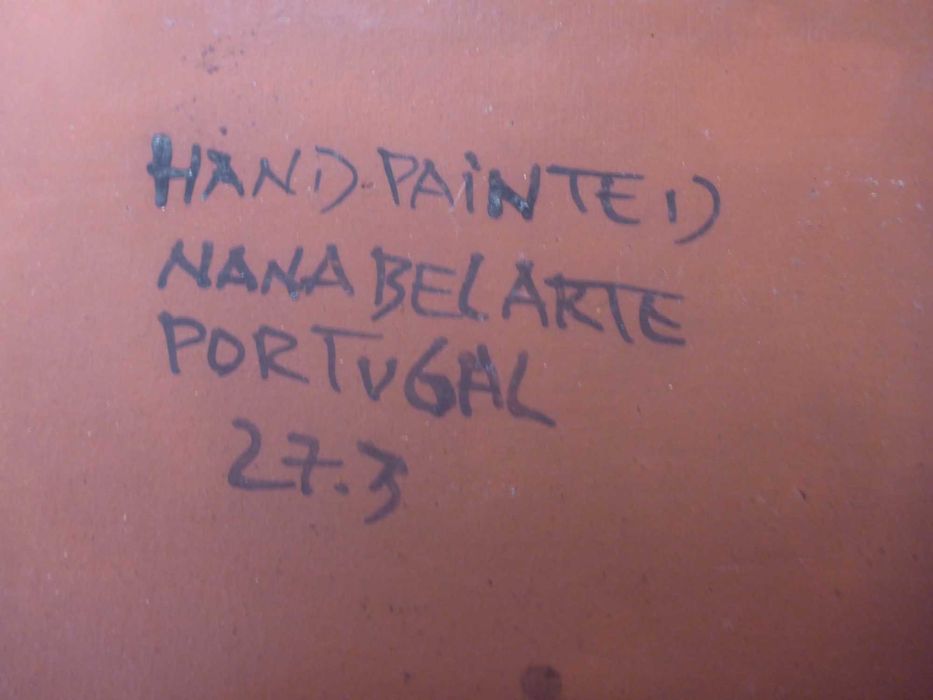 HAND-PAINTED
NANA BELARTE
PORTUGAL
27.3